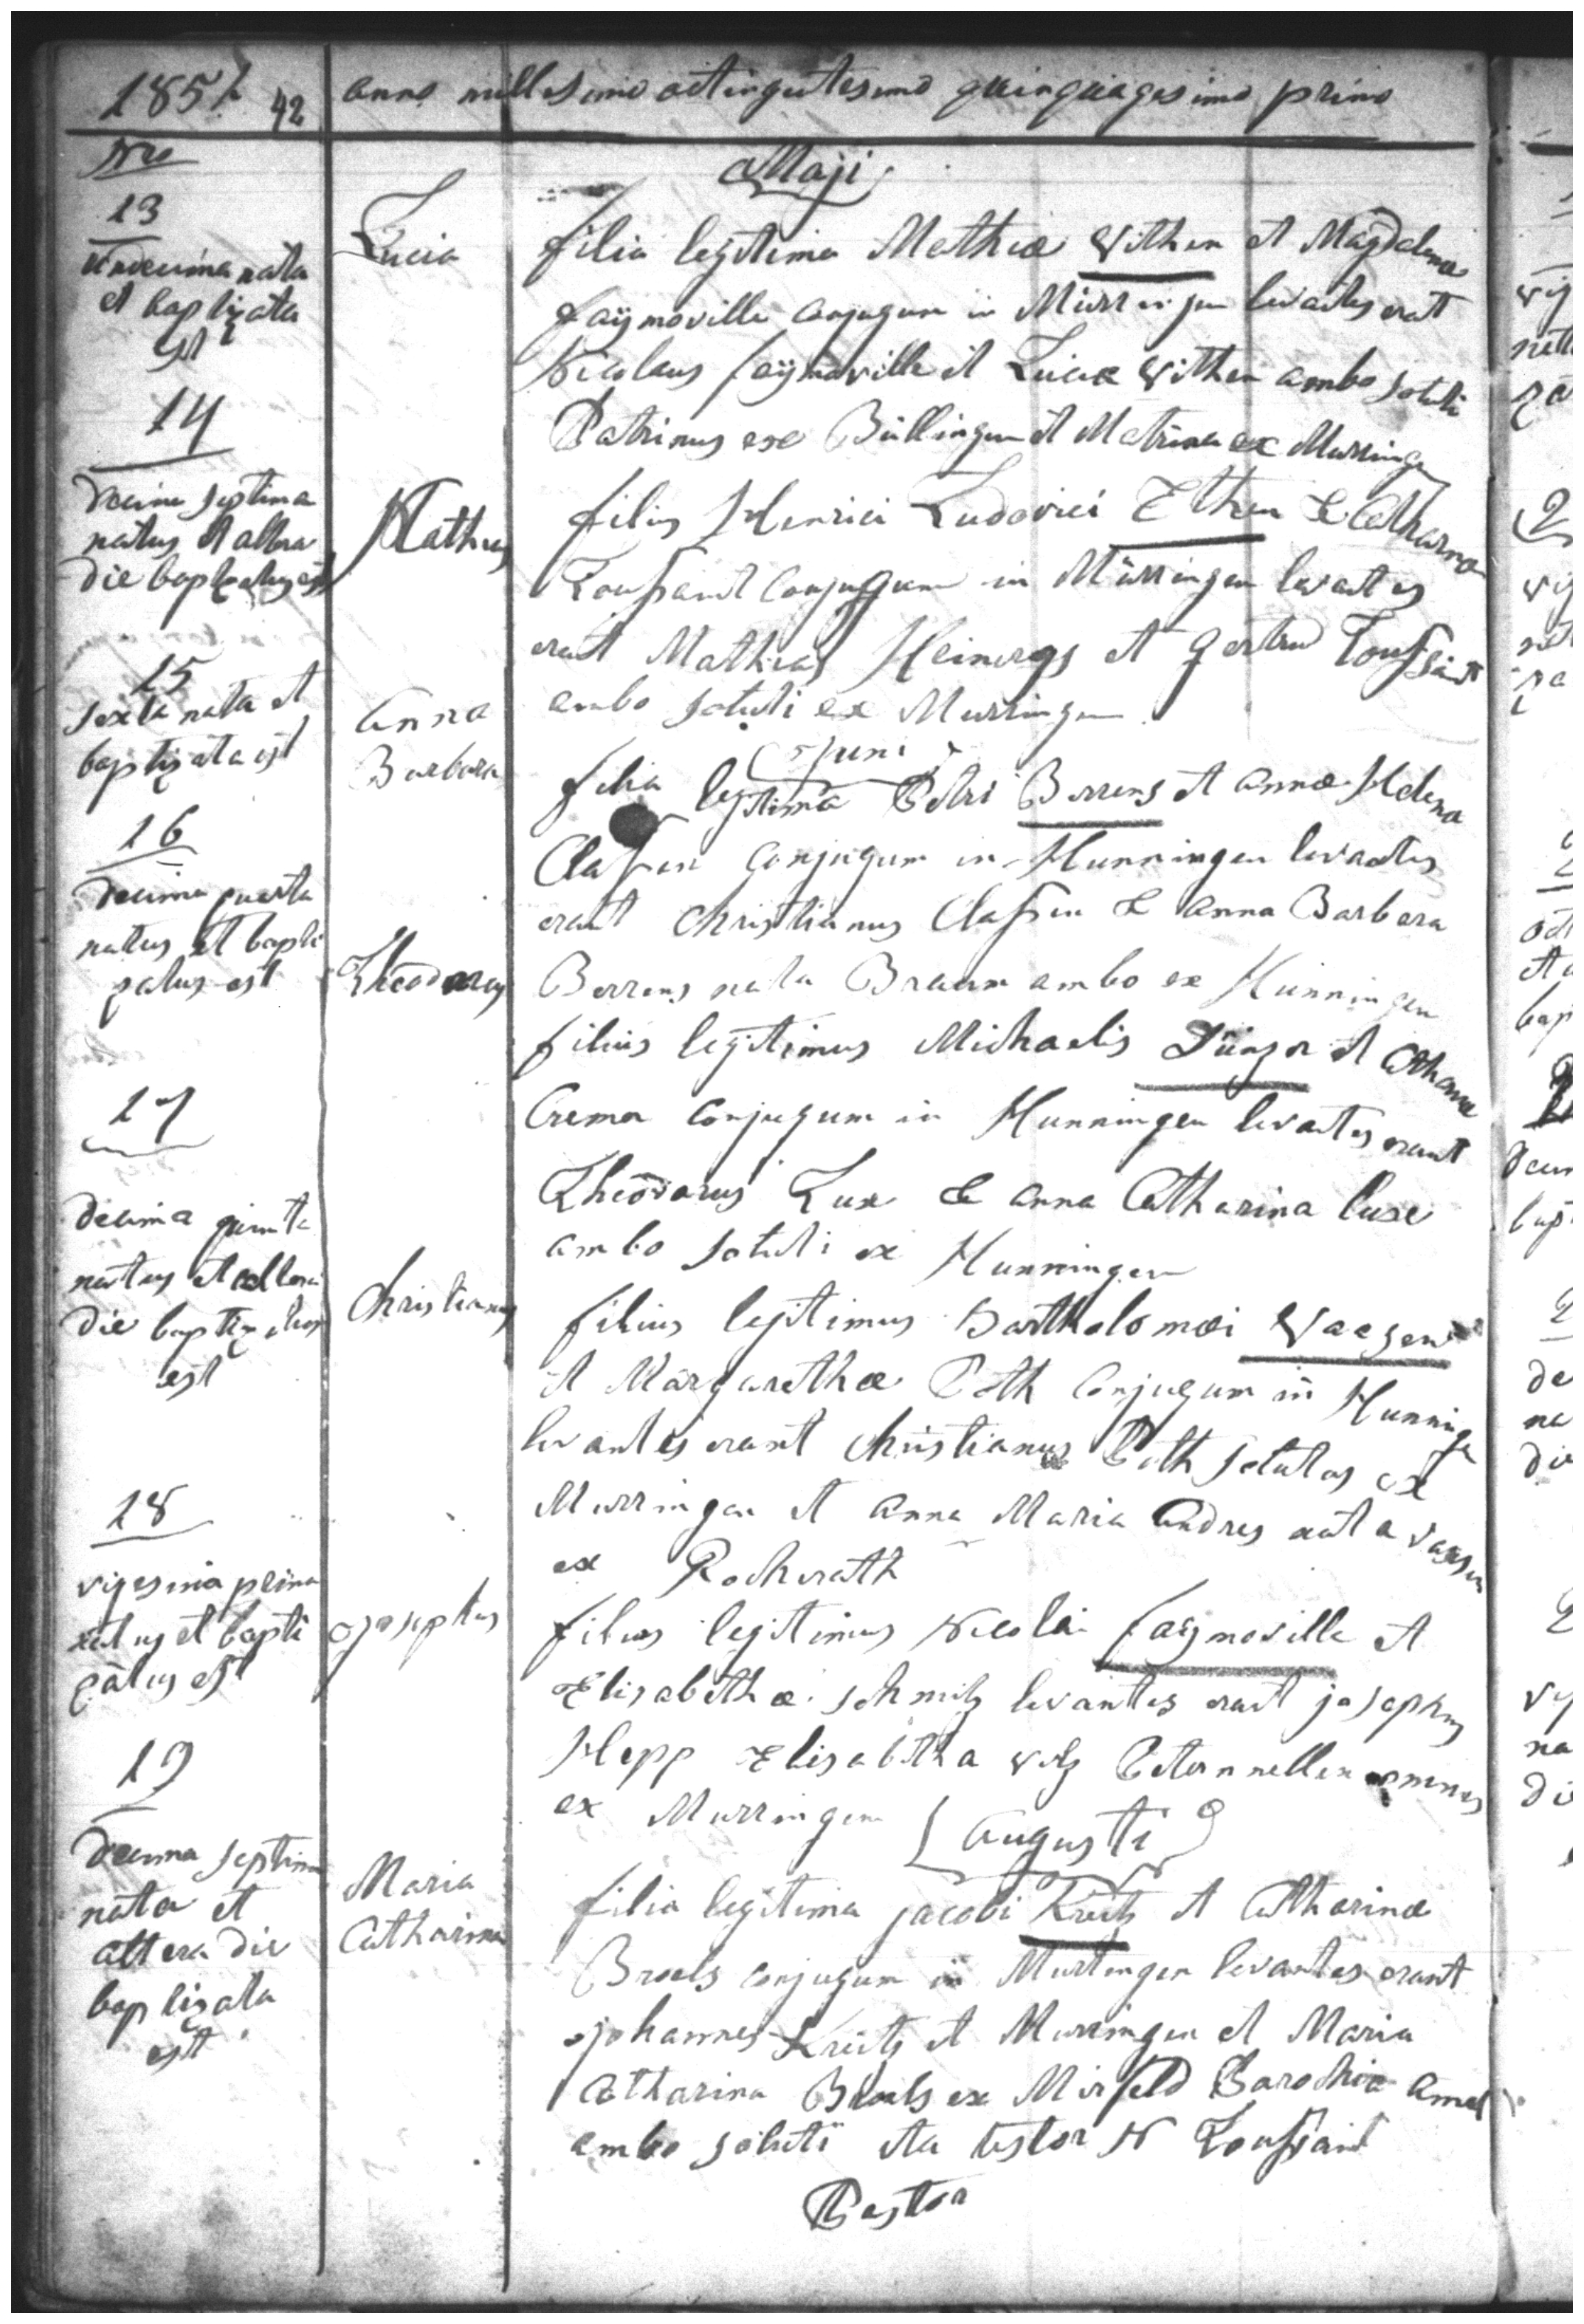 1851 42 anno millesimo octingentesimo quinquagesimo primo
Nro
Maji
13
undecima nata
et baptizata
est
Lucia
filia legitima Mathiæ Vithen et Magdalena
faymoville conjugum in Mürringen levantes erant
Nicolaus faymoville et Lucia Vithen ambo soluti
Patrinus ex Büllingen et Matrina ex Murringen
14
decima septima
natus et altera
die baptizatus est
Mathias
filius Henrici Ludovici Ethen & Catharina
Toussaint conjugum in Mürringen levantes
erant Mathias Heinergs et Gertrud Toussaint
ambo soluti ex Murringen
Juni
15
sexta nata et
baptizata est
Anna
Barbara
filia legitima Petri Berrens et Annæ Helena
Classen conjugum in Hunningen levantes
erant Christianus Classen & Anna Barbara
Berrens nata Braun ambo ex Hünningen
16
decima quarta
natus et bapti
zatus est
Theodorus
filius legitimus Michaelis Jünger et Cathar
Cremer conjugum in Hunningen levantes erant
Theodorus Lux & Anna Catharina Luxe
ambo soluti ex Hunningen
17
decima quinta
natus et altera
die baptizatus
est
Christianus
filius legitimus Bartholomæi Vaasen
et Margarethæ Poth conjugum in Hunningen
levantes erant Christianus Poth solutus ex
Murringen et Anna Maria Andres nata Vaasen
ex Rocherath
18
vigesima prima
natus et bapti
zatus est
Josephus
filius legitimus Nicolai faymoville et
Elisabethæ Schmitz levantes erant Josephus
Hepp Elisabetha Peternnellen omnes
ex Murringen
Augusti
19
Decima septima
nata et
altera die
baptizata
est
Maria
Catharina
filia legitima Jacobi Kreitz et Catharinæ
Broels conjugum in Murringen levantes erant
Johannes Kreitz et Murringen et Maria
Catharina Broels ex Mirfeld Parochiæ Amel
ambo soluti ita testor N Toussaint
Pastor